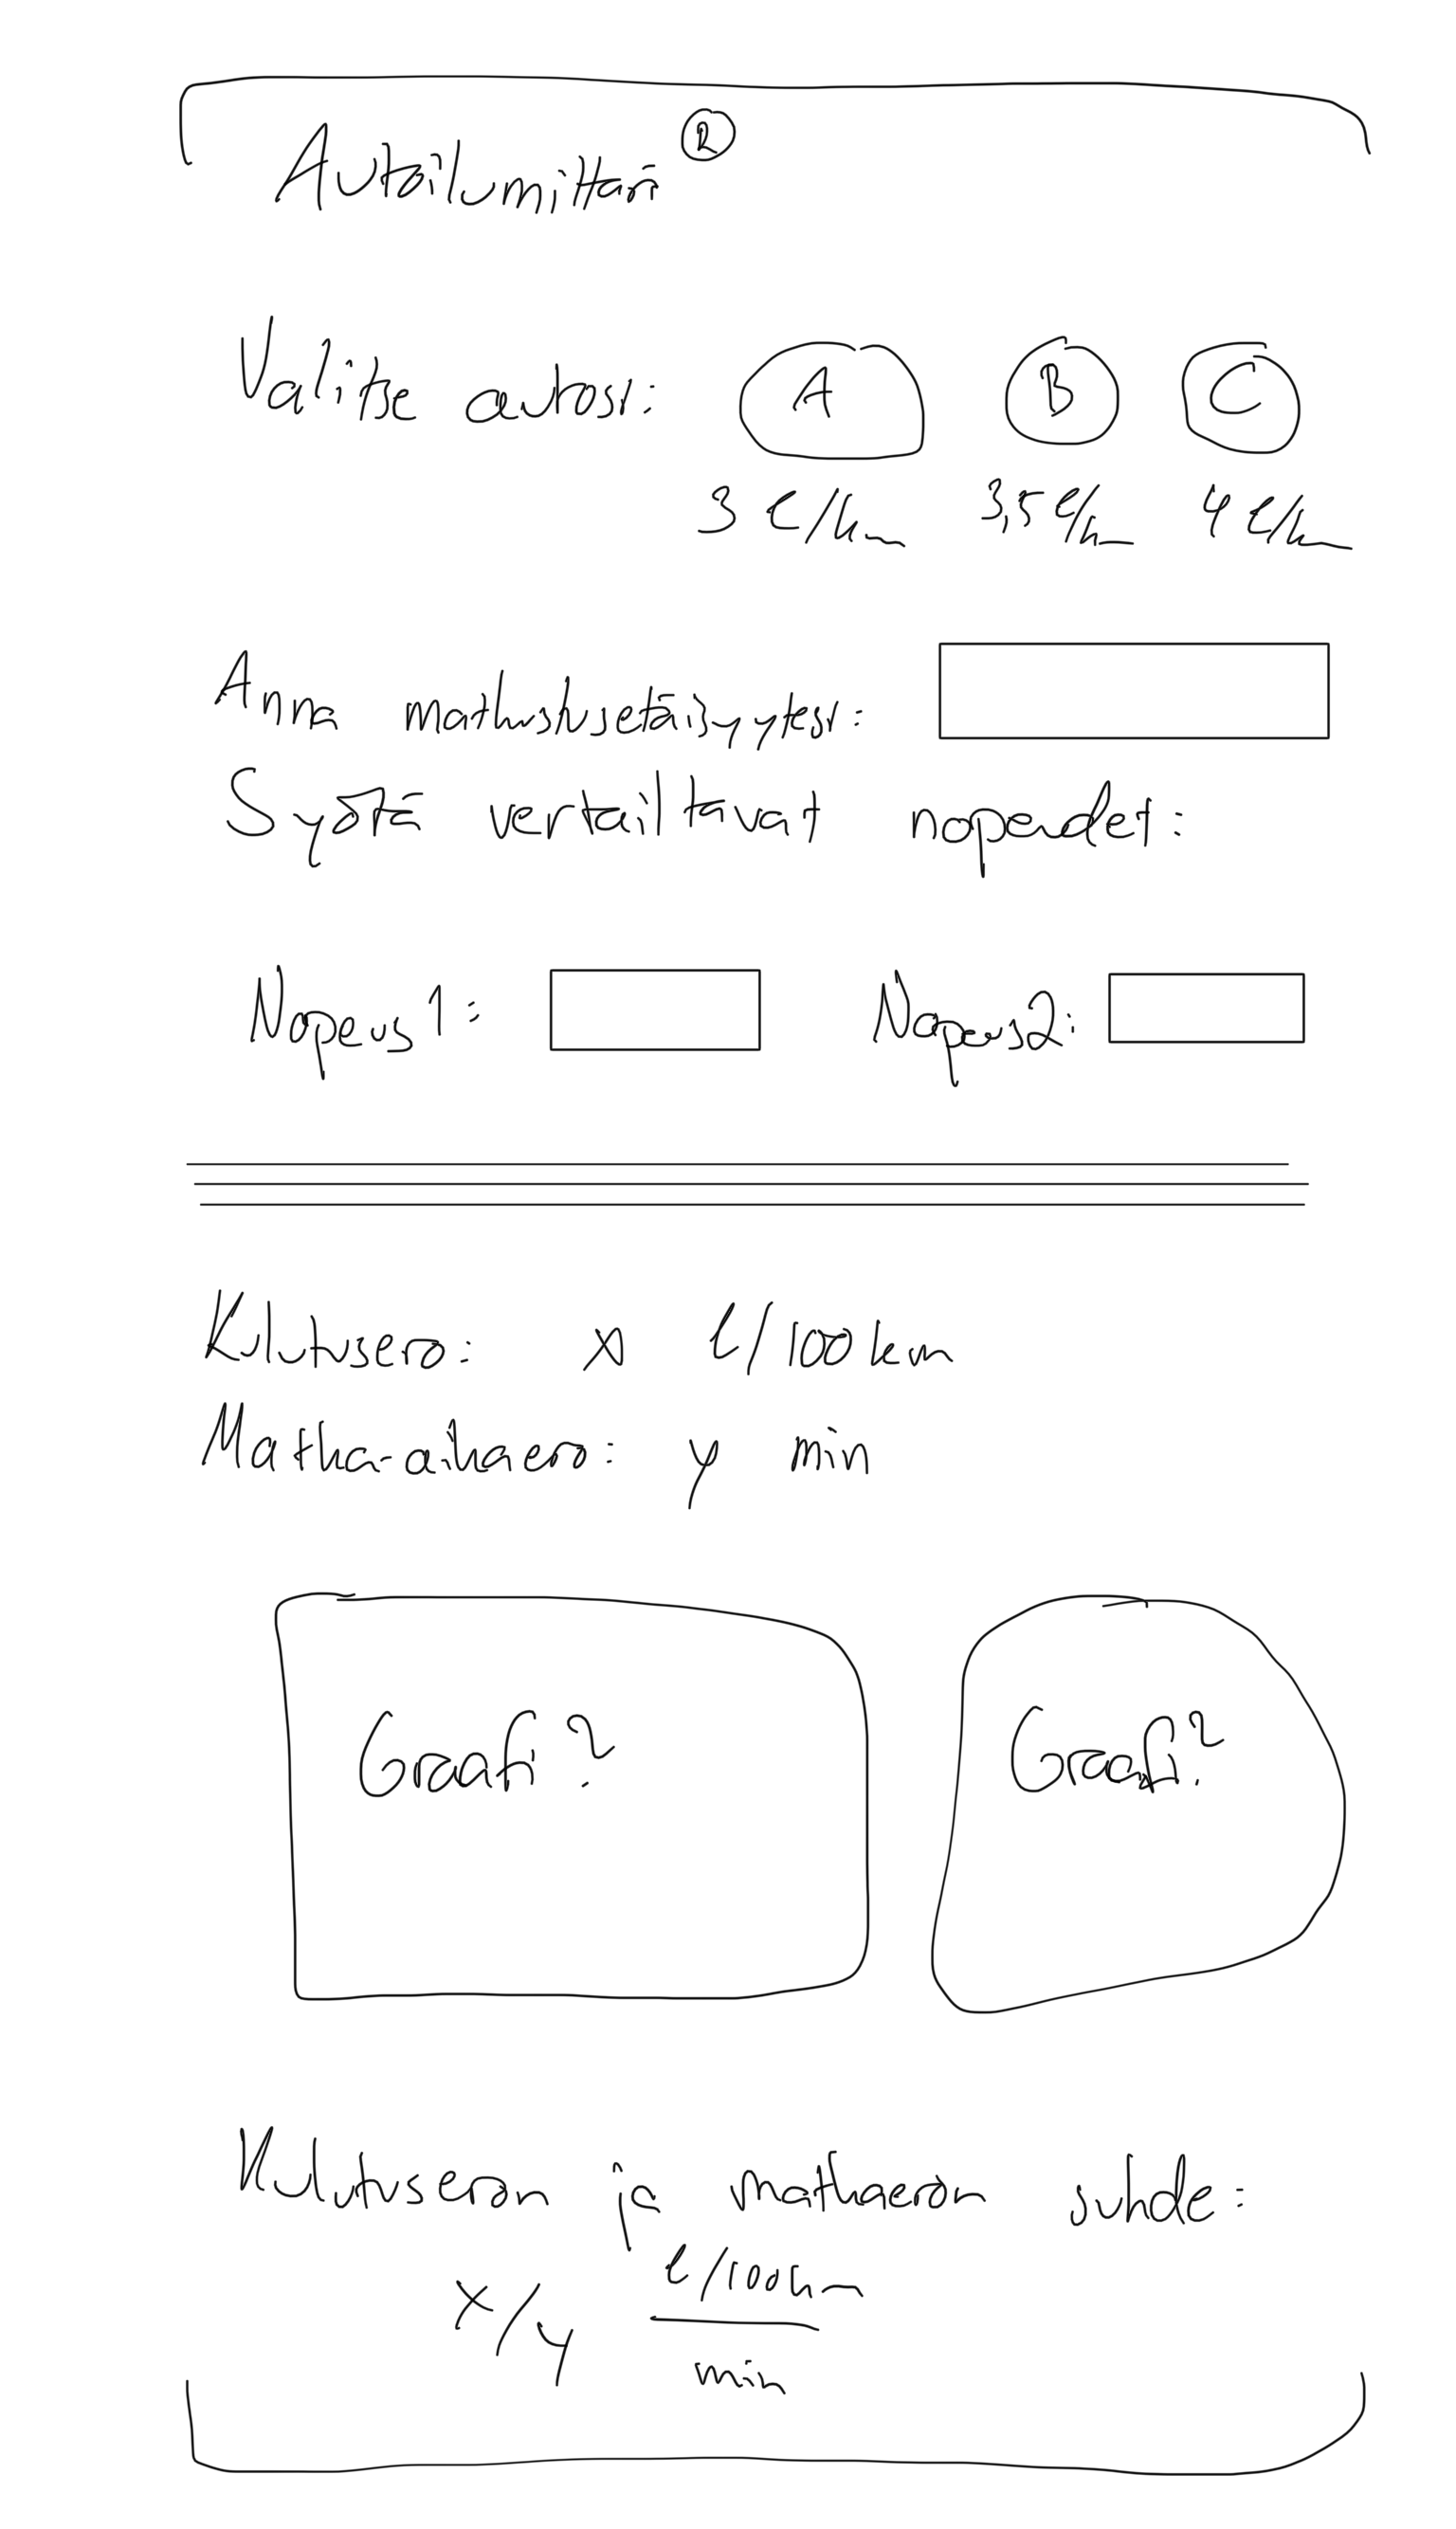 Autoilumittari ®
Valitse autosi: A B C
3 l/km 3,5 l/km 4 l/km
Anna matkustusetäisyytesi:
Syötä vertailtavat nopeudet:
Nopeus 1: Nopeus 2:
Kulutusero: x l/100 km
Matka-aikaero: y min
Graafi? Graafi?
Kulutuseron ja matkaeron suhde:
x/y l/100km
min